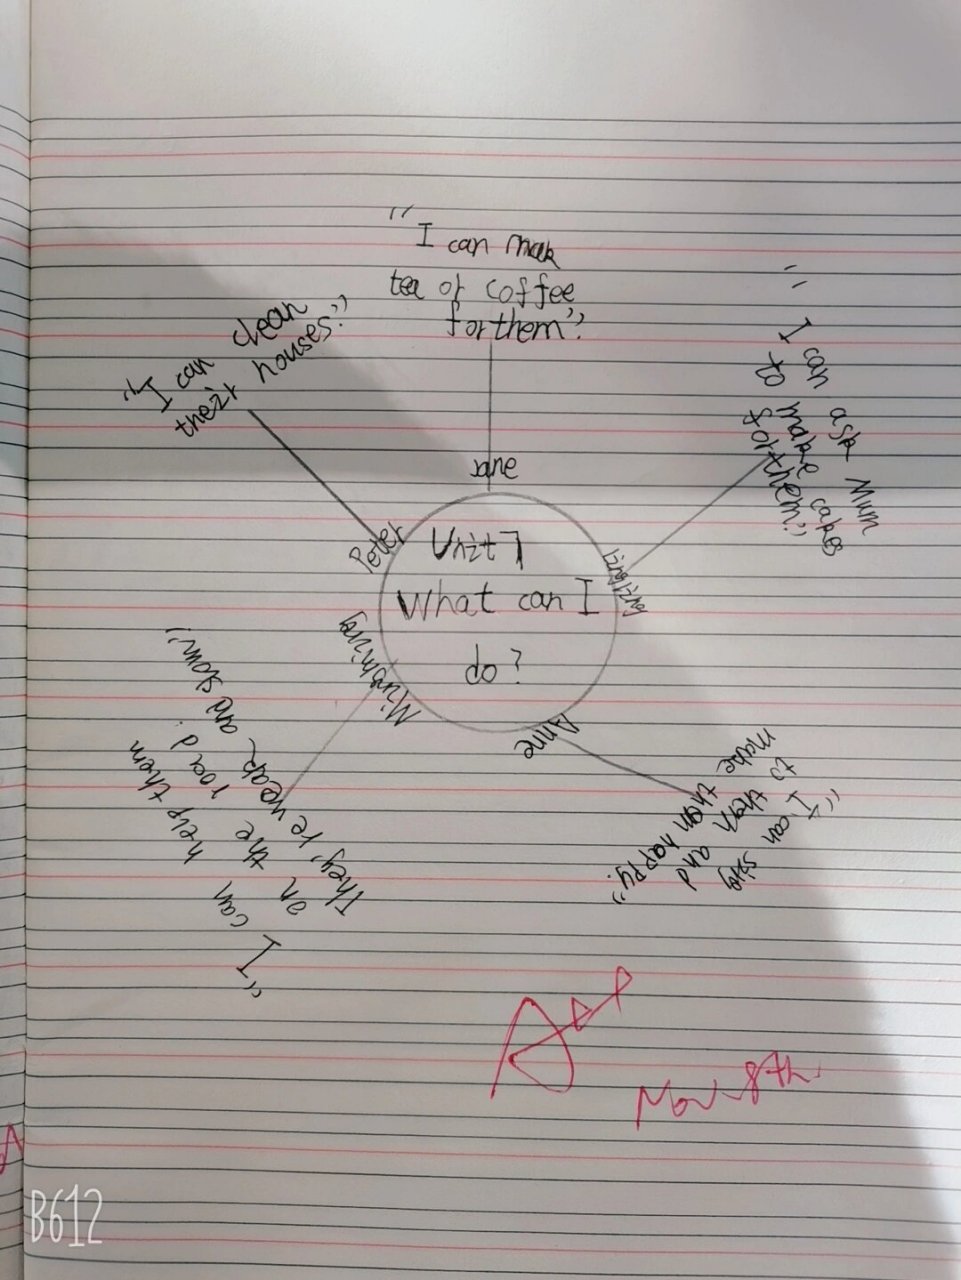 Unit 7
What can I
do?
Jane
"I can mak
tea or coffee
for them".
Lingling
"I can ask Mum
to make cakes
for them."
Anne
"I can sing
to them and
make them happy."
Mingming
"I can help them
on the road.
They're weak and slow."
Peter
"I can clean
their houses."
Nov. 8th.
B612